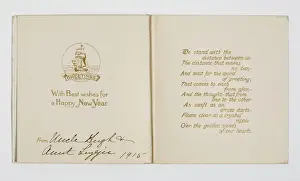 GREETINGS
With Best wishes for
a Happy New Year
From Uncle Hugh &
Aunt Lizzie 1915
We stand with the
distance between us
The distance that makes
us two,
And wait for the word
of greeting,
That comes to each
from you,
And the thought that flies
from one to the other
As swift as an
arrow darts
Flames clear as a crystal
O'er the golden wires
of our hearts.